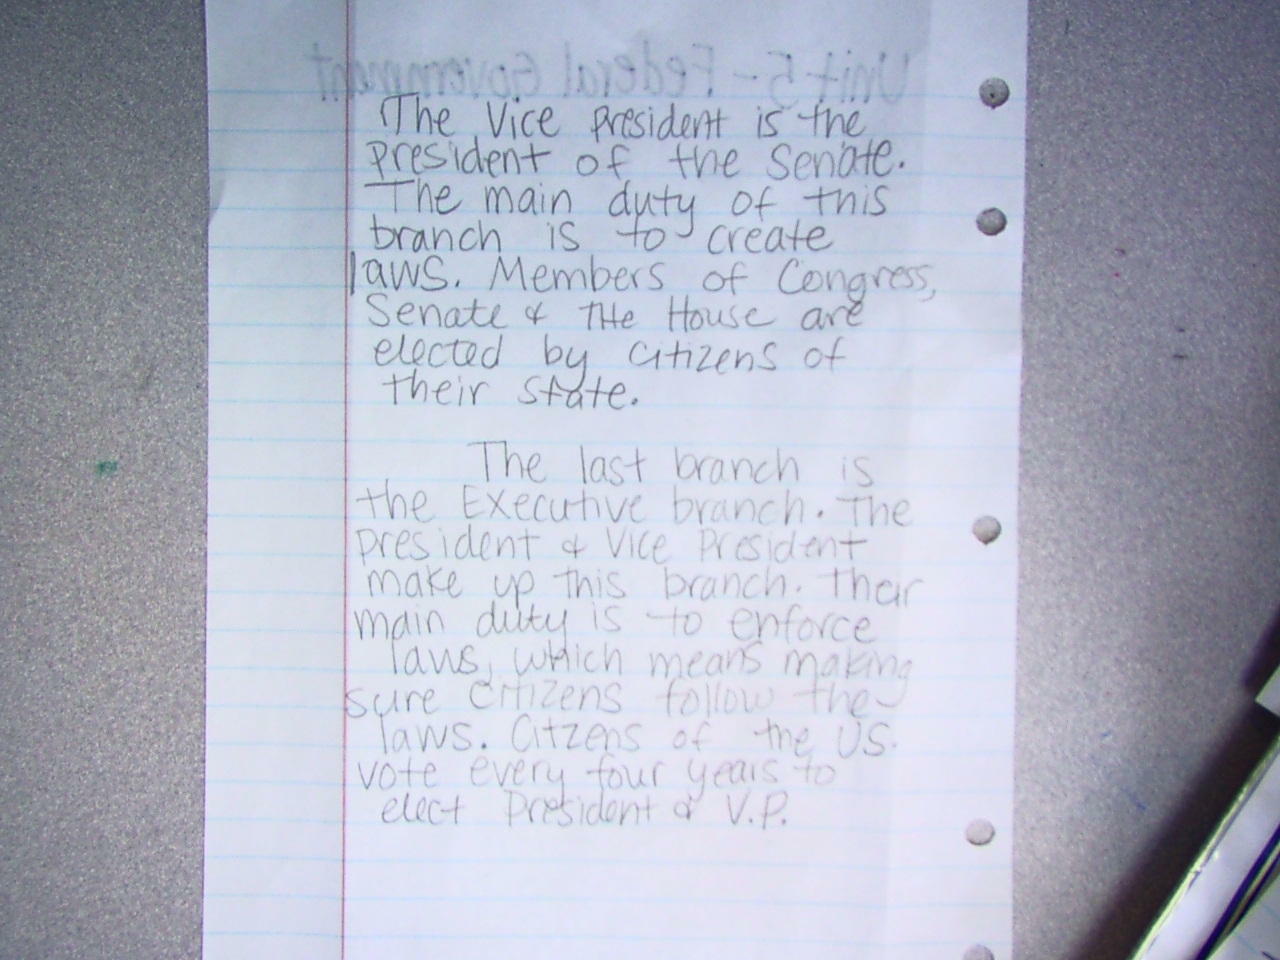 Unit 5 - Federal Government
The Vice president is the
president of the Senate.
The main duty of this
branch is to create
laws. Members of Congress,
Senate & THe House are
elected by citizens of
their state.
The last branch is
the Executive branch. The
president & Vice President
make up this branch. Their
main duty is to enforce
laws, which means making
sure citizens follow the
laws. Citzens of the US.
vote every four years to
elect President & V.P.